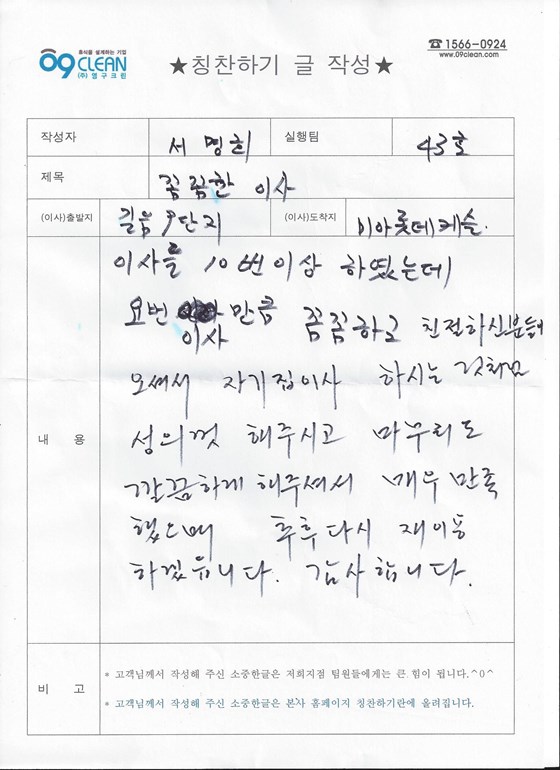 휴식을 설계하는 기업
09CLEAN
(주)영구크린
★칭찬하기 글 작성★
☎1566-0924
www.09clean.com
작성자 서명희 실행팀 43호
제목 꼼꼼한 이사
(이사)출발지 길음 9단지 (이사)도착지 미아롯데케슬.
내 용
이사를 10번이상 하였는데
요번 이사 만큼 꼼꼼하고 친절하신분들이
오셔서 자기집이사 하시는 것처럼
성의껏 해주시고 마무리도
깔끔하게 해주셔서 매우 만족
했으며 추후 다시 재이용
하겠읍니다. 감사합니다.
비 고
* 고객님께서 작성해 주신 소중한글은 저희지점 팀원들에게는 큰 힘이 됩니다.^0^
* 고객님께서 작성해 주신 소중한글은 본사 홈페이지 칭찬하기란에 올려집니다.